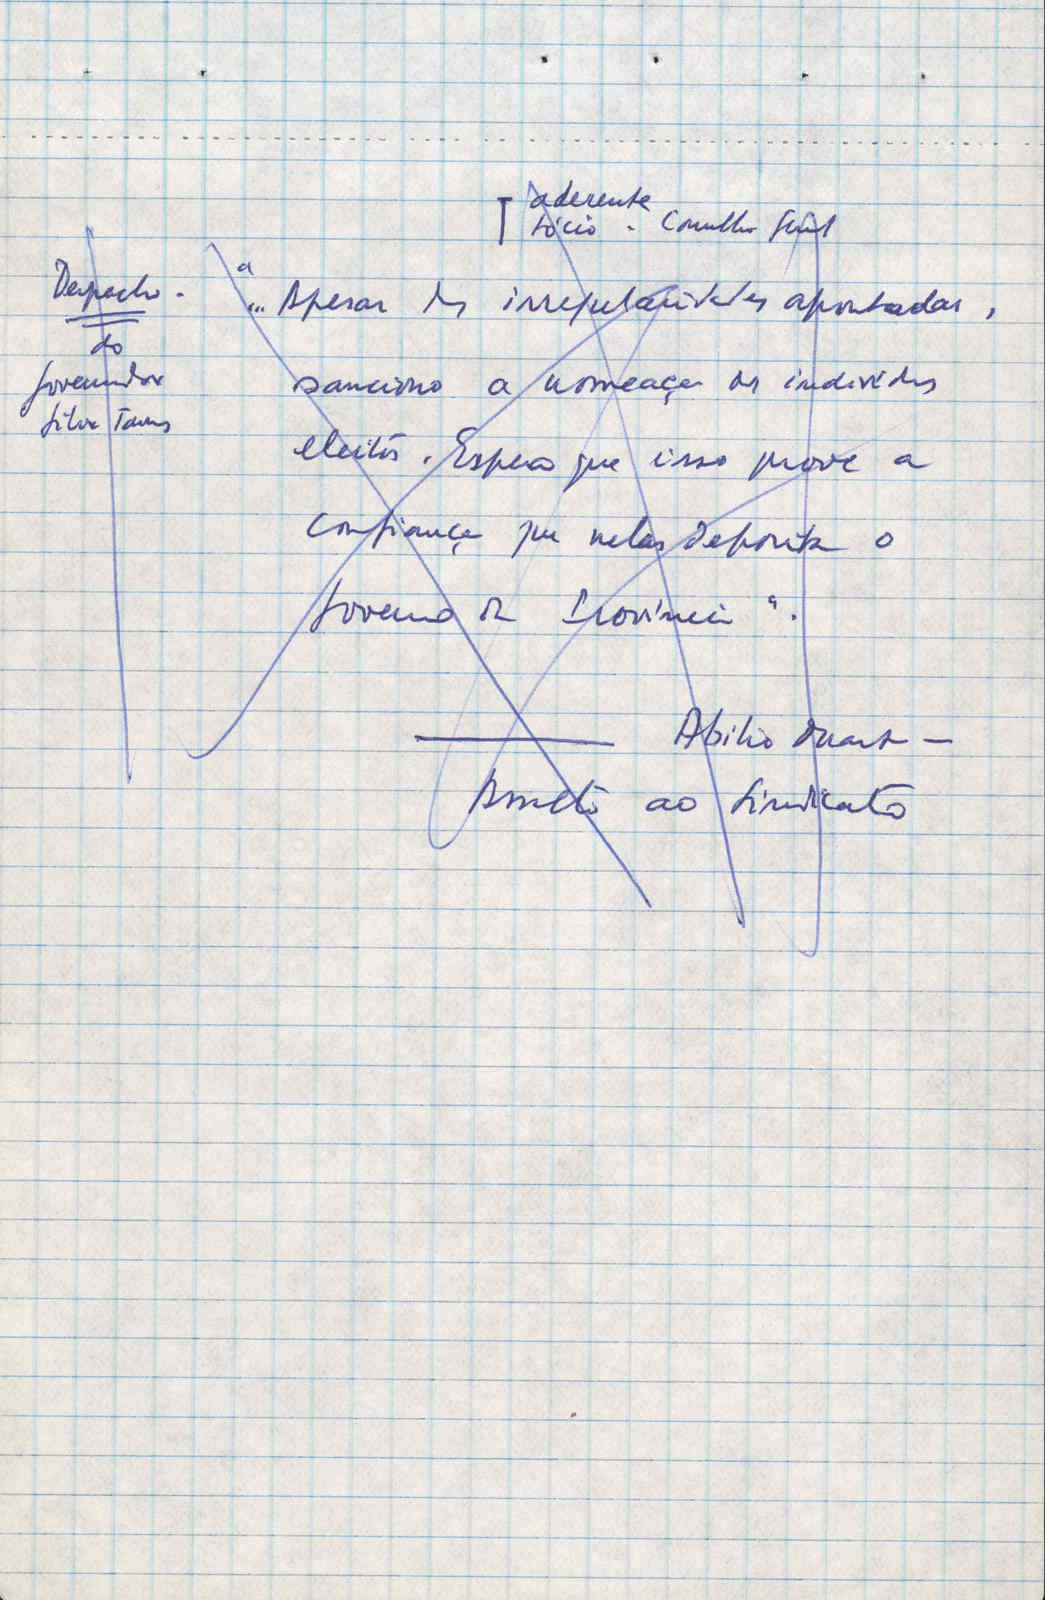 aderente
Sócio - Conselho Geral
Despacho -
do
Governador
Silva Tavares
"... Apesar das irregularidades apontadas,
sanciono a nomeação dos indivíduos
eleitos. Espero que isso prove a
confiança que nelas deposita o
Governo da Província".
Abílio Duarte -
ao Sindicato